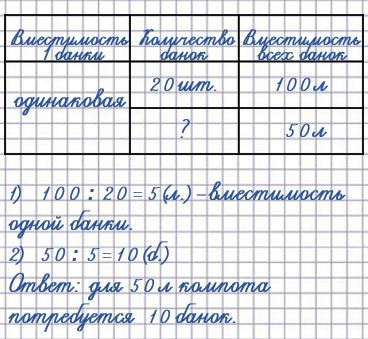 Вместимость 1 банки Количество банок Вместимость всех банок
одинаковая 20 шт. 100 л
? 50 л
1) 100 : 20 = 5 (л.) – вместимость
одной банки.
2) 50 : 5 = 10 (б.)
Ответ: для 50 л компота
потребуется 10 банок.